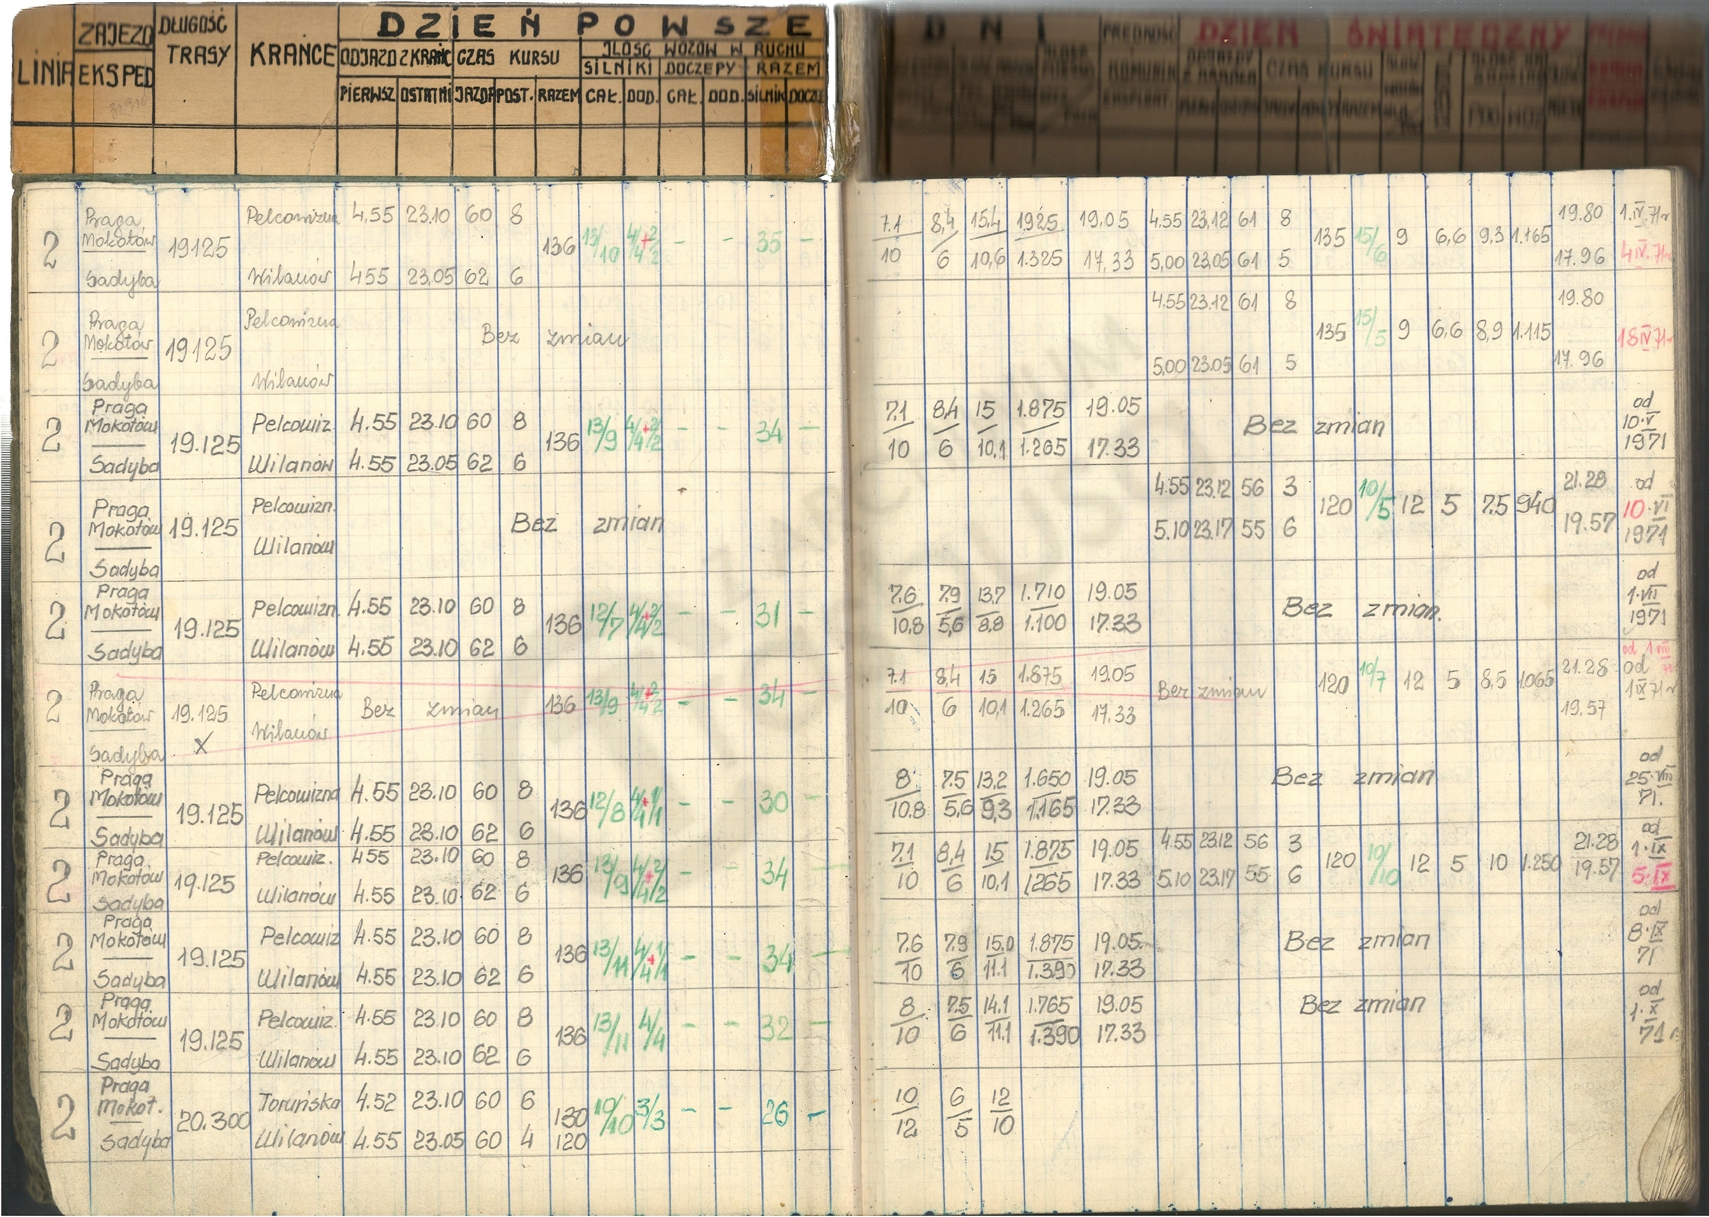 LINIA ZAJEZD EKSPED DŁUGOŚĆ TRASY KRAŃCE DZIEŃ POWSZE
ODJAZD Z KRAŃC CZAS KURSU ILOŚĆ WOZÓW W RUCHU
SILNIKI DOCZEPY RAZEM
PIERWSZ OSTATNI JAZDA POST. RAZEM CAŁ. DOD. CAŁ. DOD. SILNIK DOCZE
DNI DZIEŃ ŚWIĄTECZNY
Praga Pelcowizna 4,55 23.10 60 8 7.1 8,4 15,4 1925 19,05 4.55 23,12 61 8 19.80 1.IV.71r
2 Mokotów 19125 136 13/10 4/4+2/2 - - 35 - 135 15/6 9 6,6 9,3 1.165
Sadyba Wilanów 455 23.05 62 6 10 6 10,6 1.325 17,33 5,00 23.05 61 5 17.96 4IV.71r
Praga Pelcowizna 4.55 23.12 61 8 19.80
2 Mokotów 19125 Bez zmian 135 15/5 9 6,6 8,9 1.115 18IV71r
Sadyba Wilanów 5,00 23.05 61 5 17.96
Praga Pelcowiz. 4.55 23.10 60 8 7.1 8,4 15 1.875 19.05 od
2 Mokotów 19.125 136 13/9 4/4+2/2 - - 34 - Bez zmian 10.V
Sadyba Wilanów 4.55 23.05 62 6 10 6 10,1 1.265 17.33 1971
Praga Pelcowizn. 4.55 23.12 56 3 21.28 od
2 Mokotów 19.125 Bez zmian 120 10/5 12 5 7.5 940 10.VI
Sadyba Wilanów 5.10 23.17 55 6 19.57 1971
Praga Pelcowizn. 4.55 23.10 60 8 7.6 7.9 13,7 1.710 19.05 od
2 Mokotów 19.125 136 12/7 4/4+2/2 - - 31 - Bez zmian. 1.VII
Sadyba Wilanów 4.55 23.10 62 6 10.8 5,6 8.8 1.100 17.33 1971
Praga Pelcowizna 7.1 8,4 15 1.875 19.05 21.28 od
2 Mokotów 19.125 Bez zmian 136 13/9 4/4+2/2 - - 34 - Bez zmian 120 10/7 12 5 8,5 1.065 1IX71r
Sadyba X Wilanów 10 6 10,1 1.265 17.33 19.57
Praga Pelcowizna 4.55 23.10 60 8 8 7.5 13,2 1.650 19.05 od
2 Mokotów 19.125 136 12/8 4/4+1/1 - - 30 - Bez zmian 25.VIII
Sadyba Wilanów 4.55 23.10 62 6 10.8 5,6 9,3 1.165 17.33 71.
Praga Pelcowiz. 4.55 23.10 60 8 7.1 8,4 15 1.875 19.05 4.55 23.12 56 3 21.28 od 1.IX
2 Mokotów 19.125 136 13/9 4/4+2/2 - - 34 - 120 10/10 12 5 10 1.250
Sadyba Wilanów 4.55 23.10 62 6 10 6 10,1 1265 17.33 5.10 23.17 55 6 19.57 5.IX
Praga Pelcowiz 4.55 23.10 60 8 7.6 7.9 15.0 1.875 19.05 od
2 Mokotów 19.125 136 13/11 4/4+1/1 - - 34 - Bez zmian 8.IX
Sadyba Wilanów 4.55 23.10 62 6 10 6 11.1 1.390 17.33 71
Praga Pelcowiz. 4.55 23.10 60 8 8 7.5 14.1 1.765 19.05 od
2 Mokotów 19.125 136 13/11 4/4 - - 32 - Bez zmian 1.X
Sadyba Wilanów 4.55 23.10 62 6 10 6 11.1 1.390 17.33 71
Praga Toruńska 4.52 23.10 60 6 130 10 6 12
2 Mokot. 20.300 10/10 3/3 - - 26 -
Sadyba Wilanów 4.55 23.05 60 4 120 12 5 10